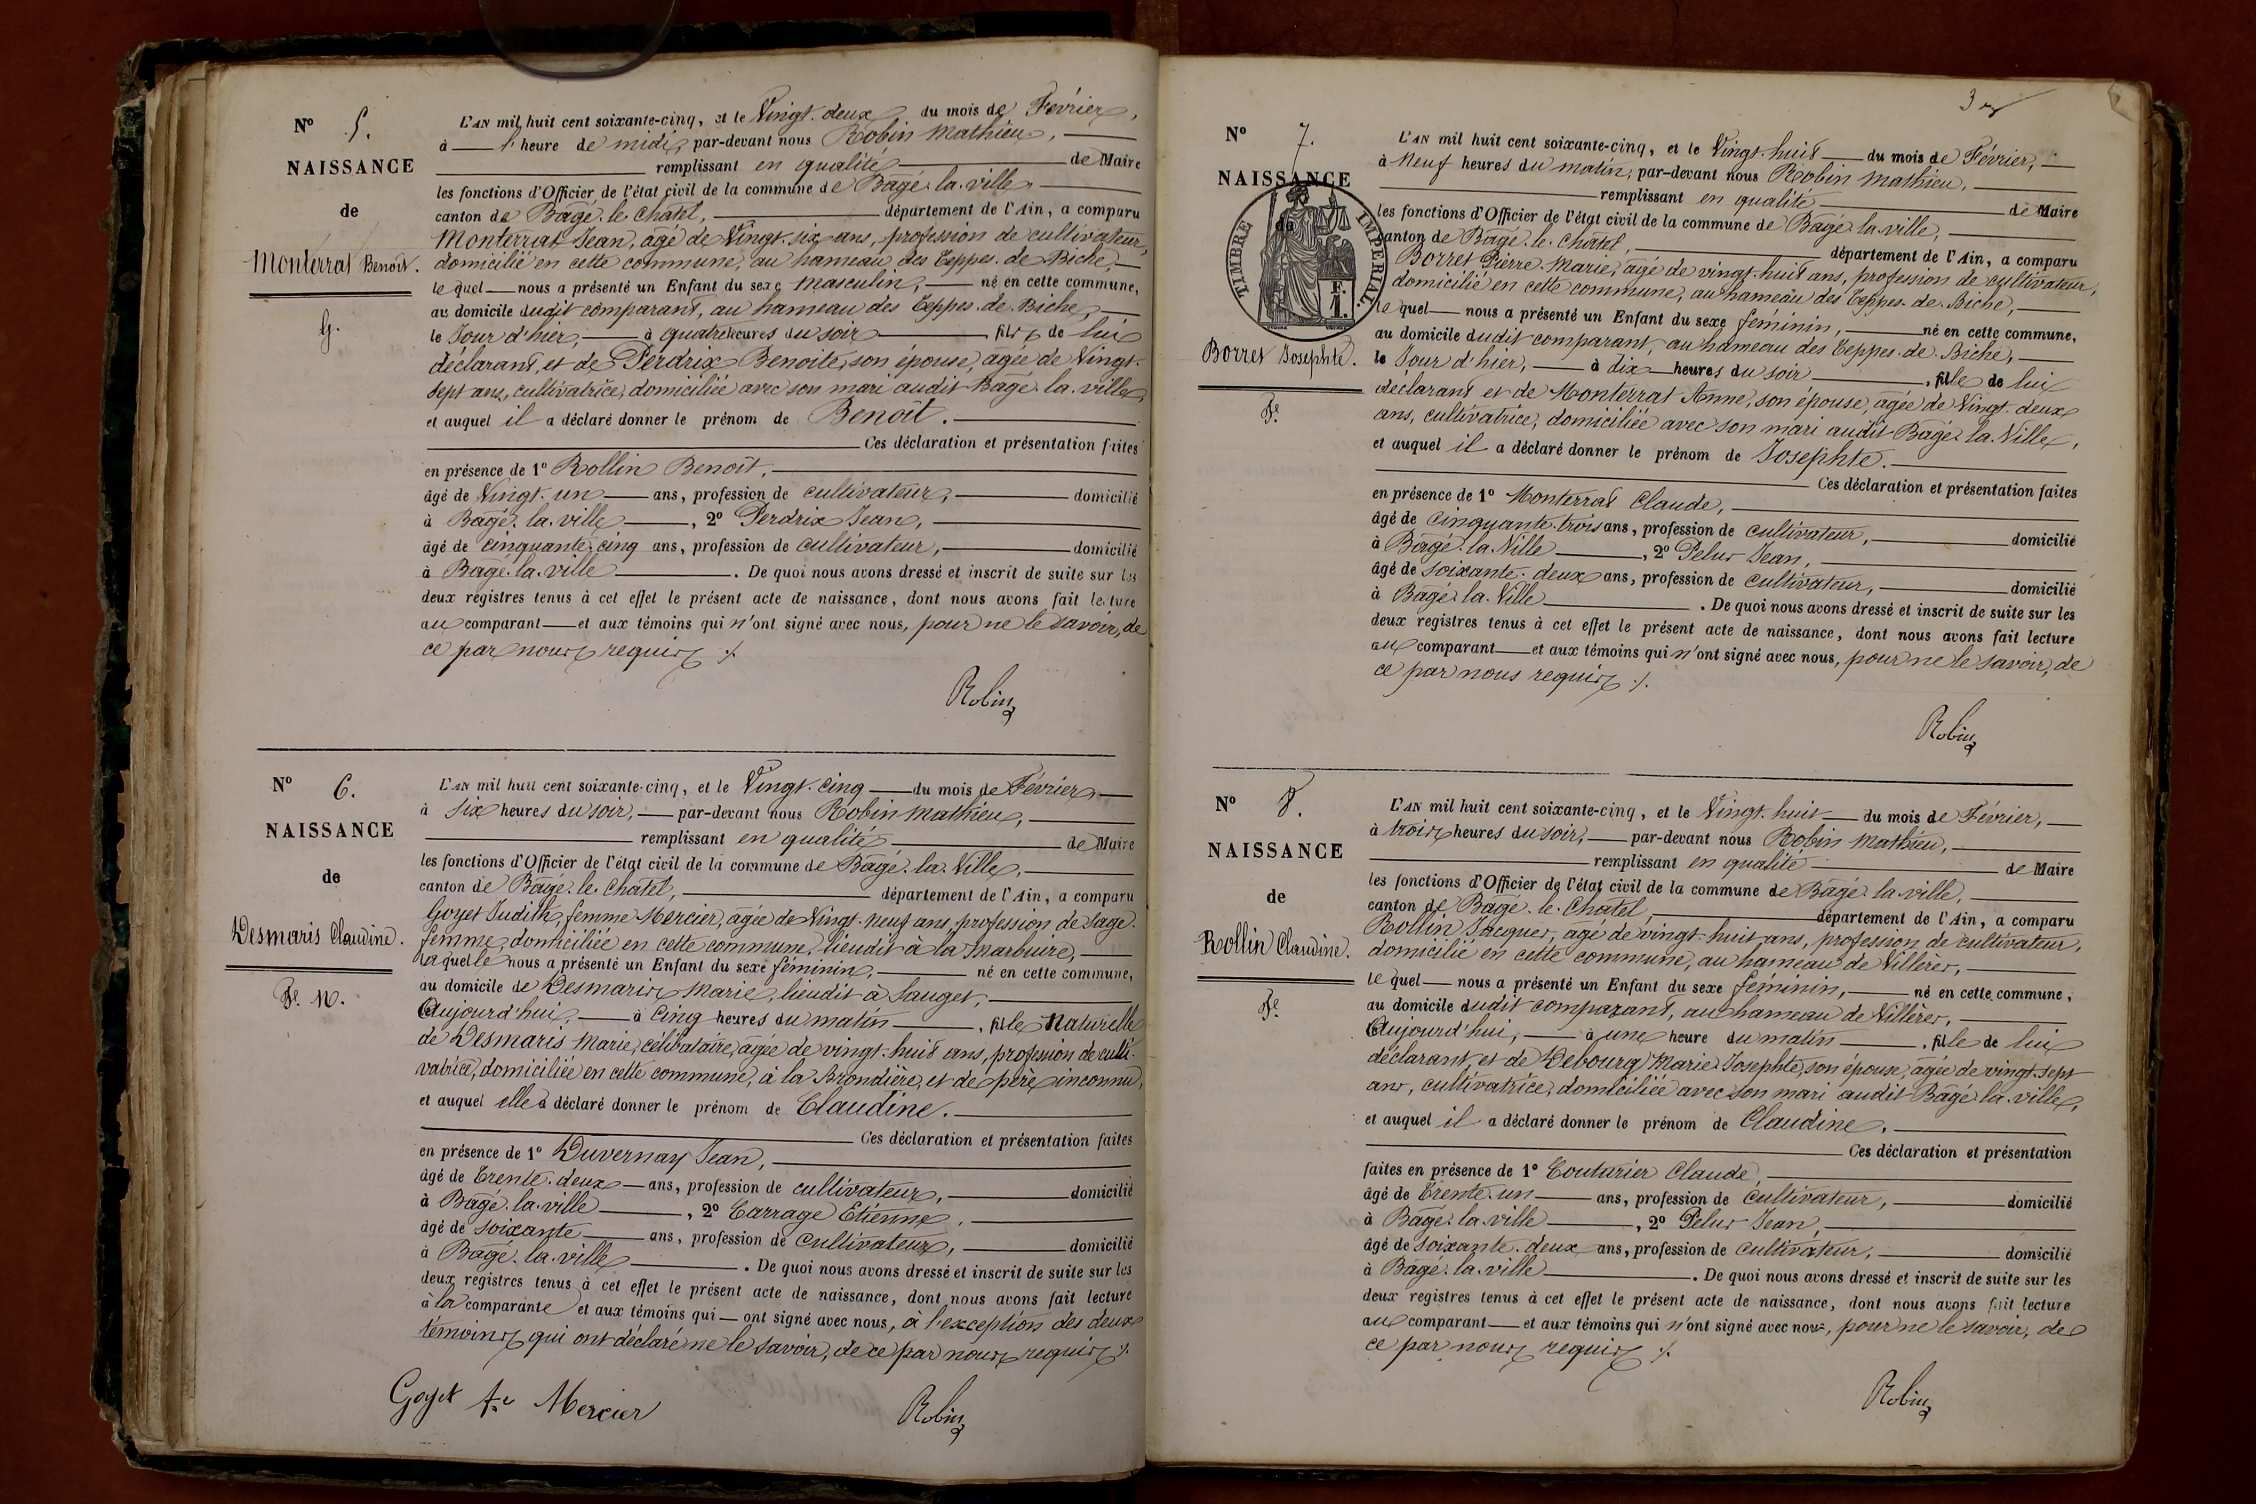 Nº 5.
NAISSANCE
de
Monterrat Benoît.
G.
L'AN mil huit cent soixante-cinq, et le Vingt-deux du mois de Février,
à l'heure de midi, par-devant nous Robin Mathieu,
remplissant en qualité de Maire
les fonctions d'Officier de l'état civil de la commune de Bâgé-la-ville,
canton de Bâgé-le-Châtel, département de l'Ain, a comparu
Monterrat Jean, âgé de Vingt-six ans, profession de cultivateur,
domicilié en cette commune, au hameau des Teppes-de-Biche,
le quel nous a présenté un Enfant du sexe masculin, né en cette commune,
au domicile dudit comparant, au hameau des Teppes-de-Biche,
le Jour d'hier, à quatre heures du soir fils de lui
déclarant, et de Perdrix Benoite, son épouse, âgée de Vingt-
sept ans, cultivatrice, domiciliée avec son mari audit Bâgé-la-ville,
et auquel il a déclaré donner le prénom de Benoît.
Ces déclaration et présentation faites
en présence de 1º Rollin Benoît,
âgé de Vingt-un ans, profession de cultivateur, domicilié
à Bâgé-la-ville, 2º Perdrix Jean,
âgé de cinquante-cinq ans, profession de cultivateur, domicilié
à Bâgé-la-ville. De quoi nous avons dressé et inscrit de suite sur les
deux registres tenus à cet effet le présent acte de naissance, dont nous avons fait lecture
au comparant et aux témoins qui n'ont signé avec nous, pour ne le savoir, de
ce par nous requis ./.
Robin
Nº 6.
NAISSANCE
de
Desmaris Claudine.
Fe. N.
L'AN mil huit cent soixante-cinq, et le Vingt-cinq du mois de Février
à six heures du soir, par-devant nous Robin Mathieu,
remplissant en qualité de Maire
les fonctions d'Officier de l'état civil de la commune de Bâgé-la-Ville,
canton de Bâgé-le-Châtel, département de l'Ain, a comparu
Goyet Judith, femme Mercier, âgée de Vingt-neuf ans, profession de Sage-
femme, domiciliée en cette commune, lieudit à la Marbure,
laquelle nous a présenté un Enfant du sexe féminin, né en cette commune,
au domicile de Desmaris Marie, lieudit à Sauget,
Aujourd'hui, à Cinq heures du matin, fille Naturelle
de Desmaris Marie, célibataire, âgée de vingt-huit ans, profession de culti-
vatrice, domiciliée en cette commune, à la Brondière, et de père inconnu,
et auquel elle a déclaré donner le prénom de Claudine.
Ces déclaration et présentation faites
en présence de 1º Duvernay Jean,
âgé de Trente-deux ans, profession de cultivateur, domicilié
à Bâgé-la-ville, 2º Carrage Etienne,
âgé de soixante ans, profession de cultivateur, domicilié
à Bâgé-la-ville. De quoi nous avons dressé et inscrit de suite sur les
deux registres tenus à cet effet le présent acte de naissance, dont nous avons fait lecture
à la comparante et aux témoins qui ont signé avec nous, à l'exception des deux
témoins qui ont déclaré ne le savoir, de ce par nous requis ./.
Goyet fe Mercier
Robin
3
Nº 7.
NAISSANCE
de
TIMBRE IMPERIAL
F. 1.
Borret Josephte.
Fe.
L'AN mil huit cent soixante-cinq, et le Vingt-huit du mois de Février,
à Neuf heures du matin, par-devant nous Robin Mathieu,
remplissant en qualité de Maire
les fonctions d'Officier de l'état civil de la commune de Bâgé-la-ville,
canton de Bâgé-le-Châtel, département de l'Ain, a comparu
Borret Pierre-Marie, âgé de vingt-huit ans, profession de cultivateur,
domicilié en cette commune, au hameau des Teppes-de-Biche,
le quel nous a présenté un Enfant du sexe féminin, né en cette commune,
au domicile dudit comparant, au hameau des Teppes-de-Biche,
le Jour d'hier, à dix heures du soir, fille de lui
déclarant et de Monterrat Anne, son épouse, âgée de Vingt-deux
ans, cultivatrice, domiciliée avec son mari audit Bâgé-la-Ville,
et auquel il a déclaré donner le prénom de Josephte.
Ces déclaration et présentation faites
en présence de 1º Monterrat Claude,
âgé de cinquante-trois ans, profession de cultivateur, domicilié
à Bâgé-la-Ville, 2º Pelus Jean,
âgé de soixante-deux ans, profession de cultivateur, domicilié
à Bâgé-la-Ville. De quoi nous avons dressé et inscrit de suite sur les
deux registres tenus à cet effet le présent acte de naissance, dont nous avons fait lecture
au comparant et aux témoins qui n'ont signé avec nous, pour ne le savoir, de
ce par nous requis ./.
Robin
Nº 8.
NAISSANCE
de
Rollin Claudine.
Fe.
L'AN mil huit cent soixante-cinq, et le Vingt-huit du mois de Février,
à trois heures du soir, par-devant nous Robin Mathieu,
remplissant en qualité de Maire
les fonctions d'Officier de l'état civil de la commune de Bâgé-la-ville,
canton de Bâgé-le-Châtel, département de l'Ain, a comparu
Rollin Jacques, âgé de vingt-huit ans, profession de cultivateur,
domicilié en cette commune, au hameau de Villères,
le quel nous a présenté un Enfant du sexe féminin, né en cette commune,
au domicile dudit comparant, au hameau de Villères,
Aujourd'hui, à une heure du matin, fille de lui
déclarant, et de Debourg Marie Josephte, son épouse, âgée de vingt-sept
ans, cultivatrice, domiciliée avec son mari audit Bâgé-la-ville,
et auquel il a déclaré donner le prénom de Claudine.
Ces déclaration et présentation
faites en présence de 1º Couturier Claude,
âgé de Trente-un ans, profession de cultivateur, domicilié
à Bâgé-la-ville, 2º Pelus Jean,
âgé de soixante-deux ans, profession de cultivateur, domicilié
à Bâgé-la-ville. De quoi nous avons dressé et inscrit de suite sur les
deux registres tenus à cet effet le présent acte de naissance, dont nous avons fait lecture
au comparant et aux témoins qui n'ont signé avec nous, pour ne le savoir, de
ce par nous requis ./.
Robin